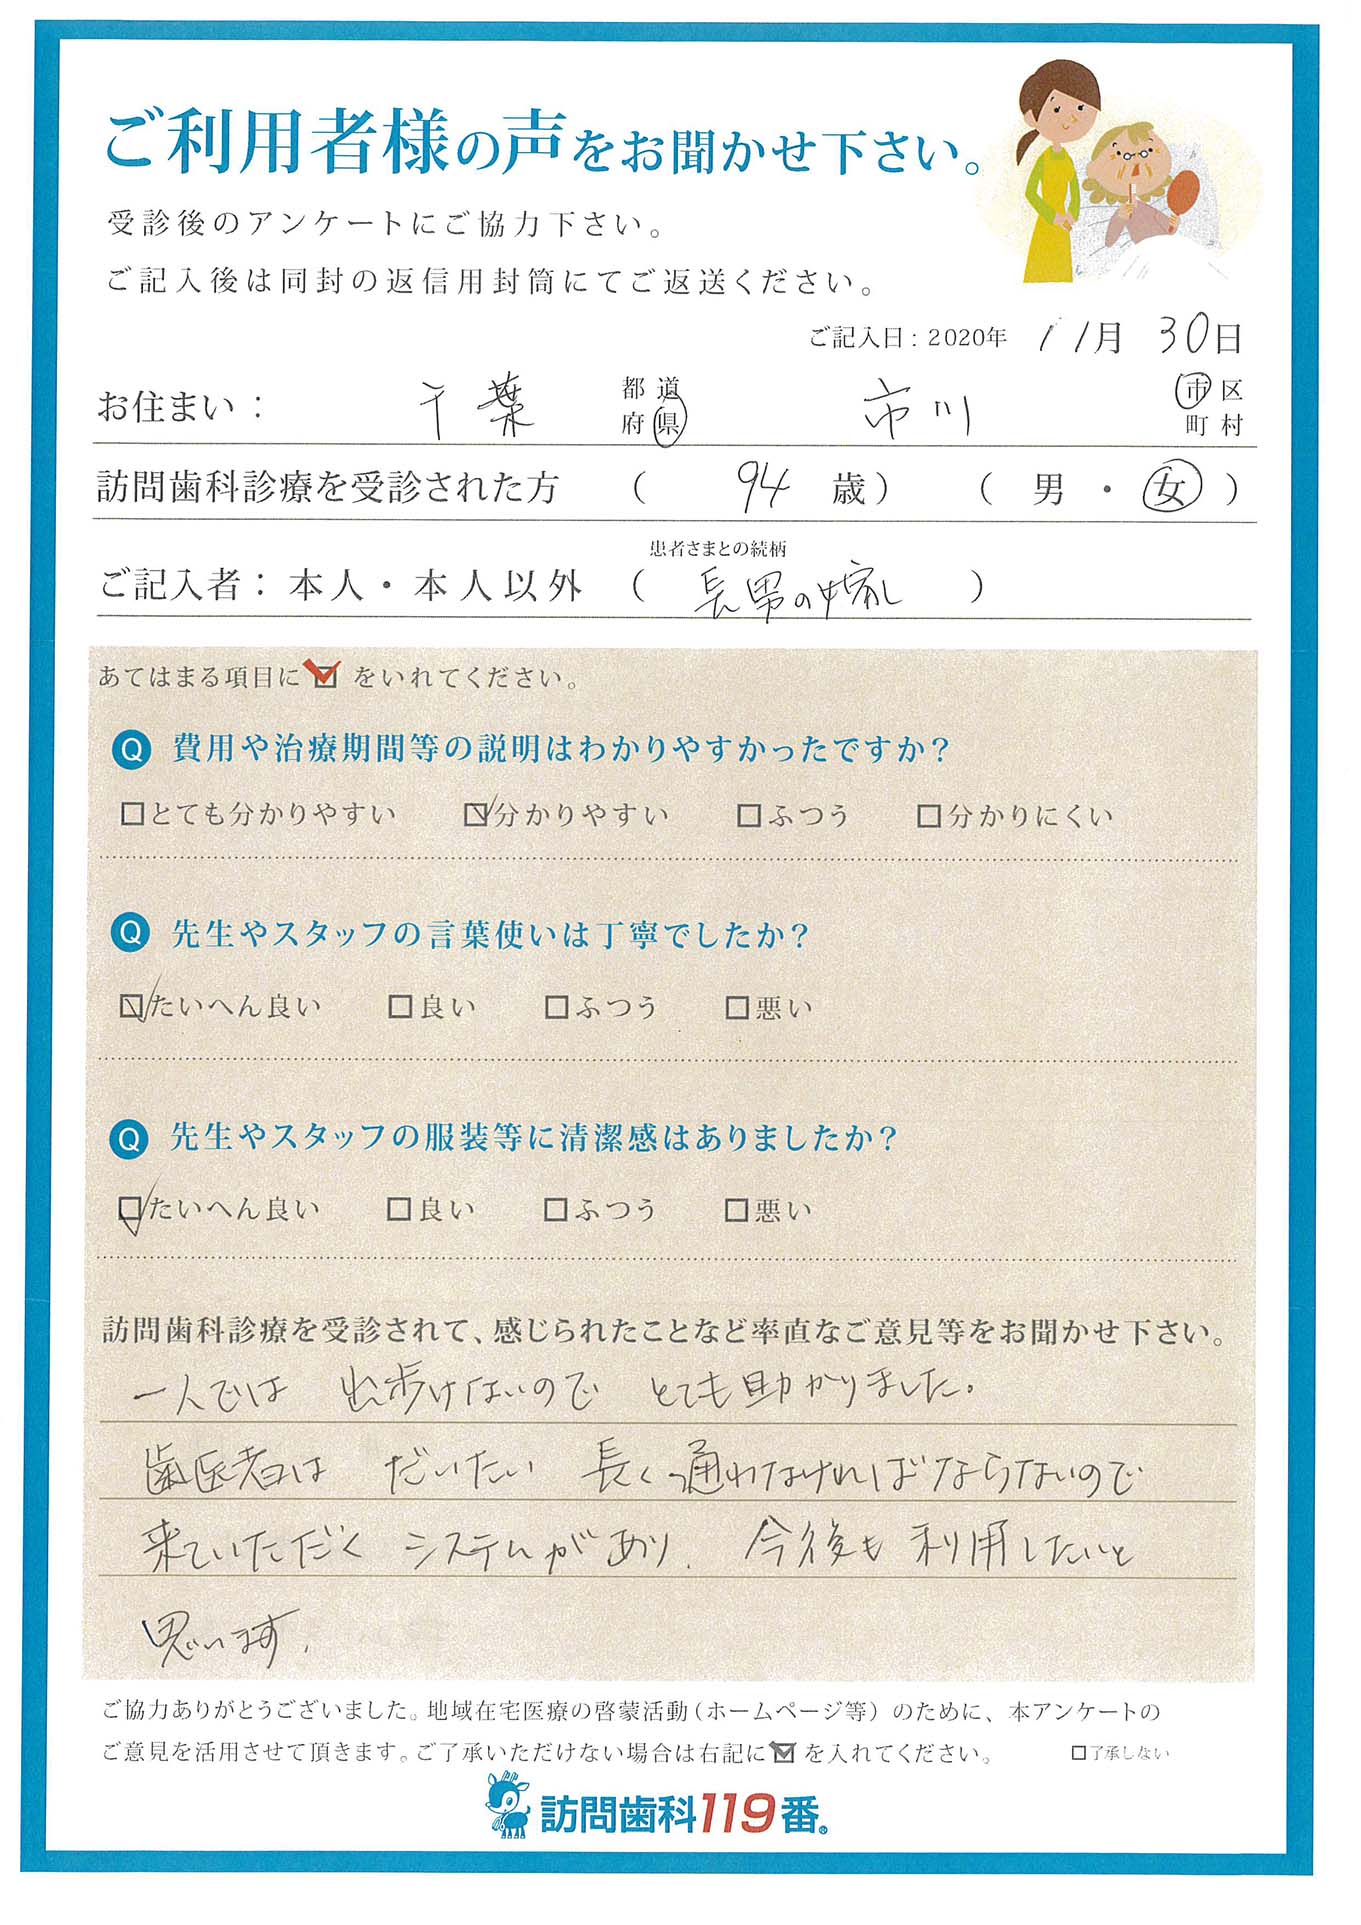 ご利用者様の声をお聞かせ下さい。
受診後のアンケートにご協力下さい。
ご記入後は同封の返信用封筒にてご返送ください。
ご記入日：2020年 11月 30日
お住まい： 千葉 都道府県 市川 市区町村
訪問歯科診療を受診された方 （ 94 歳） （ 男 ・ 女 ）
患者さまとの続柄
ご記入者：本人・本人以外 （ 長男の嫁 ）
あてはまる項目に ☑ をいれてください。
Q 費用や治療期間等の説明はわかりやすかったですか？
□とても分かりやすい ☑分かりやすい □ふつう □分かりにくい
Q 先生やスタッフの言葉使いは丁寧でしたか？
☑たいへん良い □良い □ふつう □悪い
Q 先生やスタッフの服装等に清潔感はありましたか？
☑たいへん良い □良い □ふつう □悪い
訪問歯科診療を受診されて、感じられたことなど率直なご意見等をお聞かせ下さい。
一人では 出歩けないので とても助かりました。
歯医者は だいたい 長く通わなければならないので
来ていただく システムがあり、今後も利用したいと
思います。
ご協力ありがとうございました。地域在宅医療の啓蒙活動（ホームページ等）のために、本アンケートの
ご意見を活用させて頂きます。ご了承いただけない場合は右記に☑を入れてください。 □了承しない
訪問歯科119番®